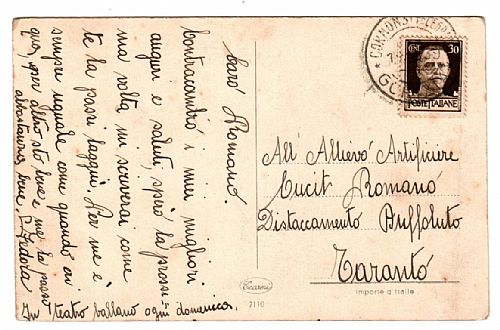 Caro Romano.
Contraccambio i miei migliori
auguri e saluti, spero la prossi-
ma volta mi scriverai come
te la passi laggiù. Per me è
sempre uguale come quando eri
qua, per altro sto bene e me la passo
abbastanza bene. Fedora
In Teatro ballano ogni domenica.
CENT. 30
POSTE ITALIANE
All' Allievo Artificiere
Cucit Romano
Distaccamento Buffoluto
Taranto
Cecami
7110
Importé d'Italie